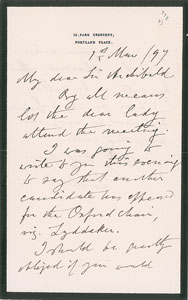 12, PARK CRESCENT,
PORTLAND PLACE.
1st Mar /97
My dear Sir Archibald
By all means
let the dear lady
attend the meeting.
I was going to
write to you this evening
to say that another
candidate has appeared
for the Oxford Chair,
viz. Lydekker.
I should be greatly
obliged if you would